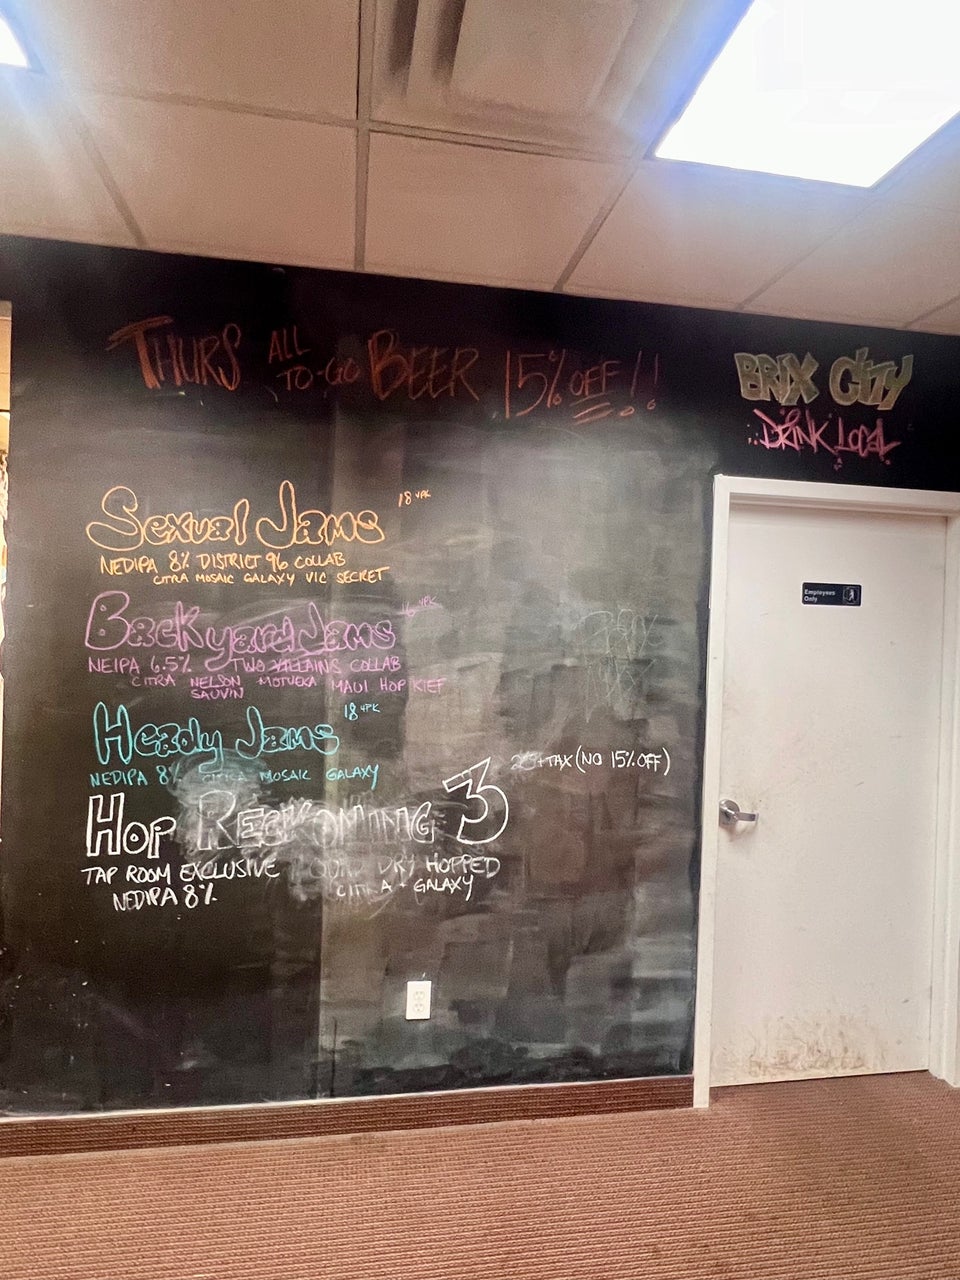 THURS ALL TO-GO BEER 15% OFF!!
BRIX CITY
DRINK LOCAL
Sexual Jams 18 4PK
NEDIPA 8% DISTRICT 96 COLLAB
CITRA MOSAIC GALAXY VIC SECRET
Employees Only
Backyard Jams 16 4PK
NEIPA 6.5% TWO VILLAINS COLLAB
CITRA NELSON MOTUEKA MAUI HOP KIEF
SAUVIN
Heady Jams 18 4PK
NEDIPA 8% CITRA MOSAIC GALAXY
HOP RECKONING 3 +TAX (NO 15% OFF)
TAP ROOM EXCLUSIVE DRY HOPPED
NEDIPA 8% CITRA + GALAXY